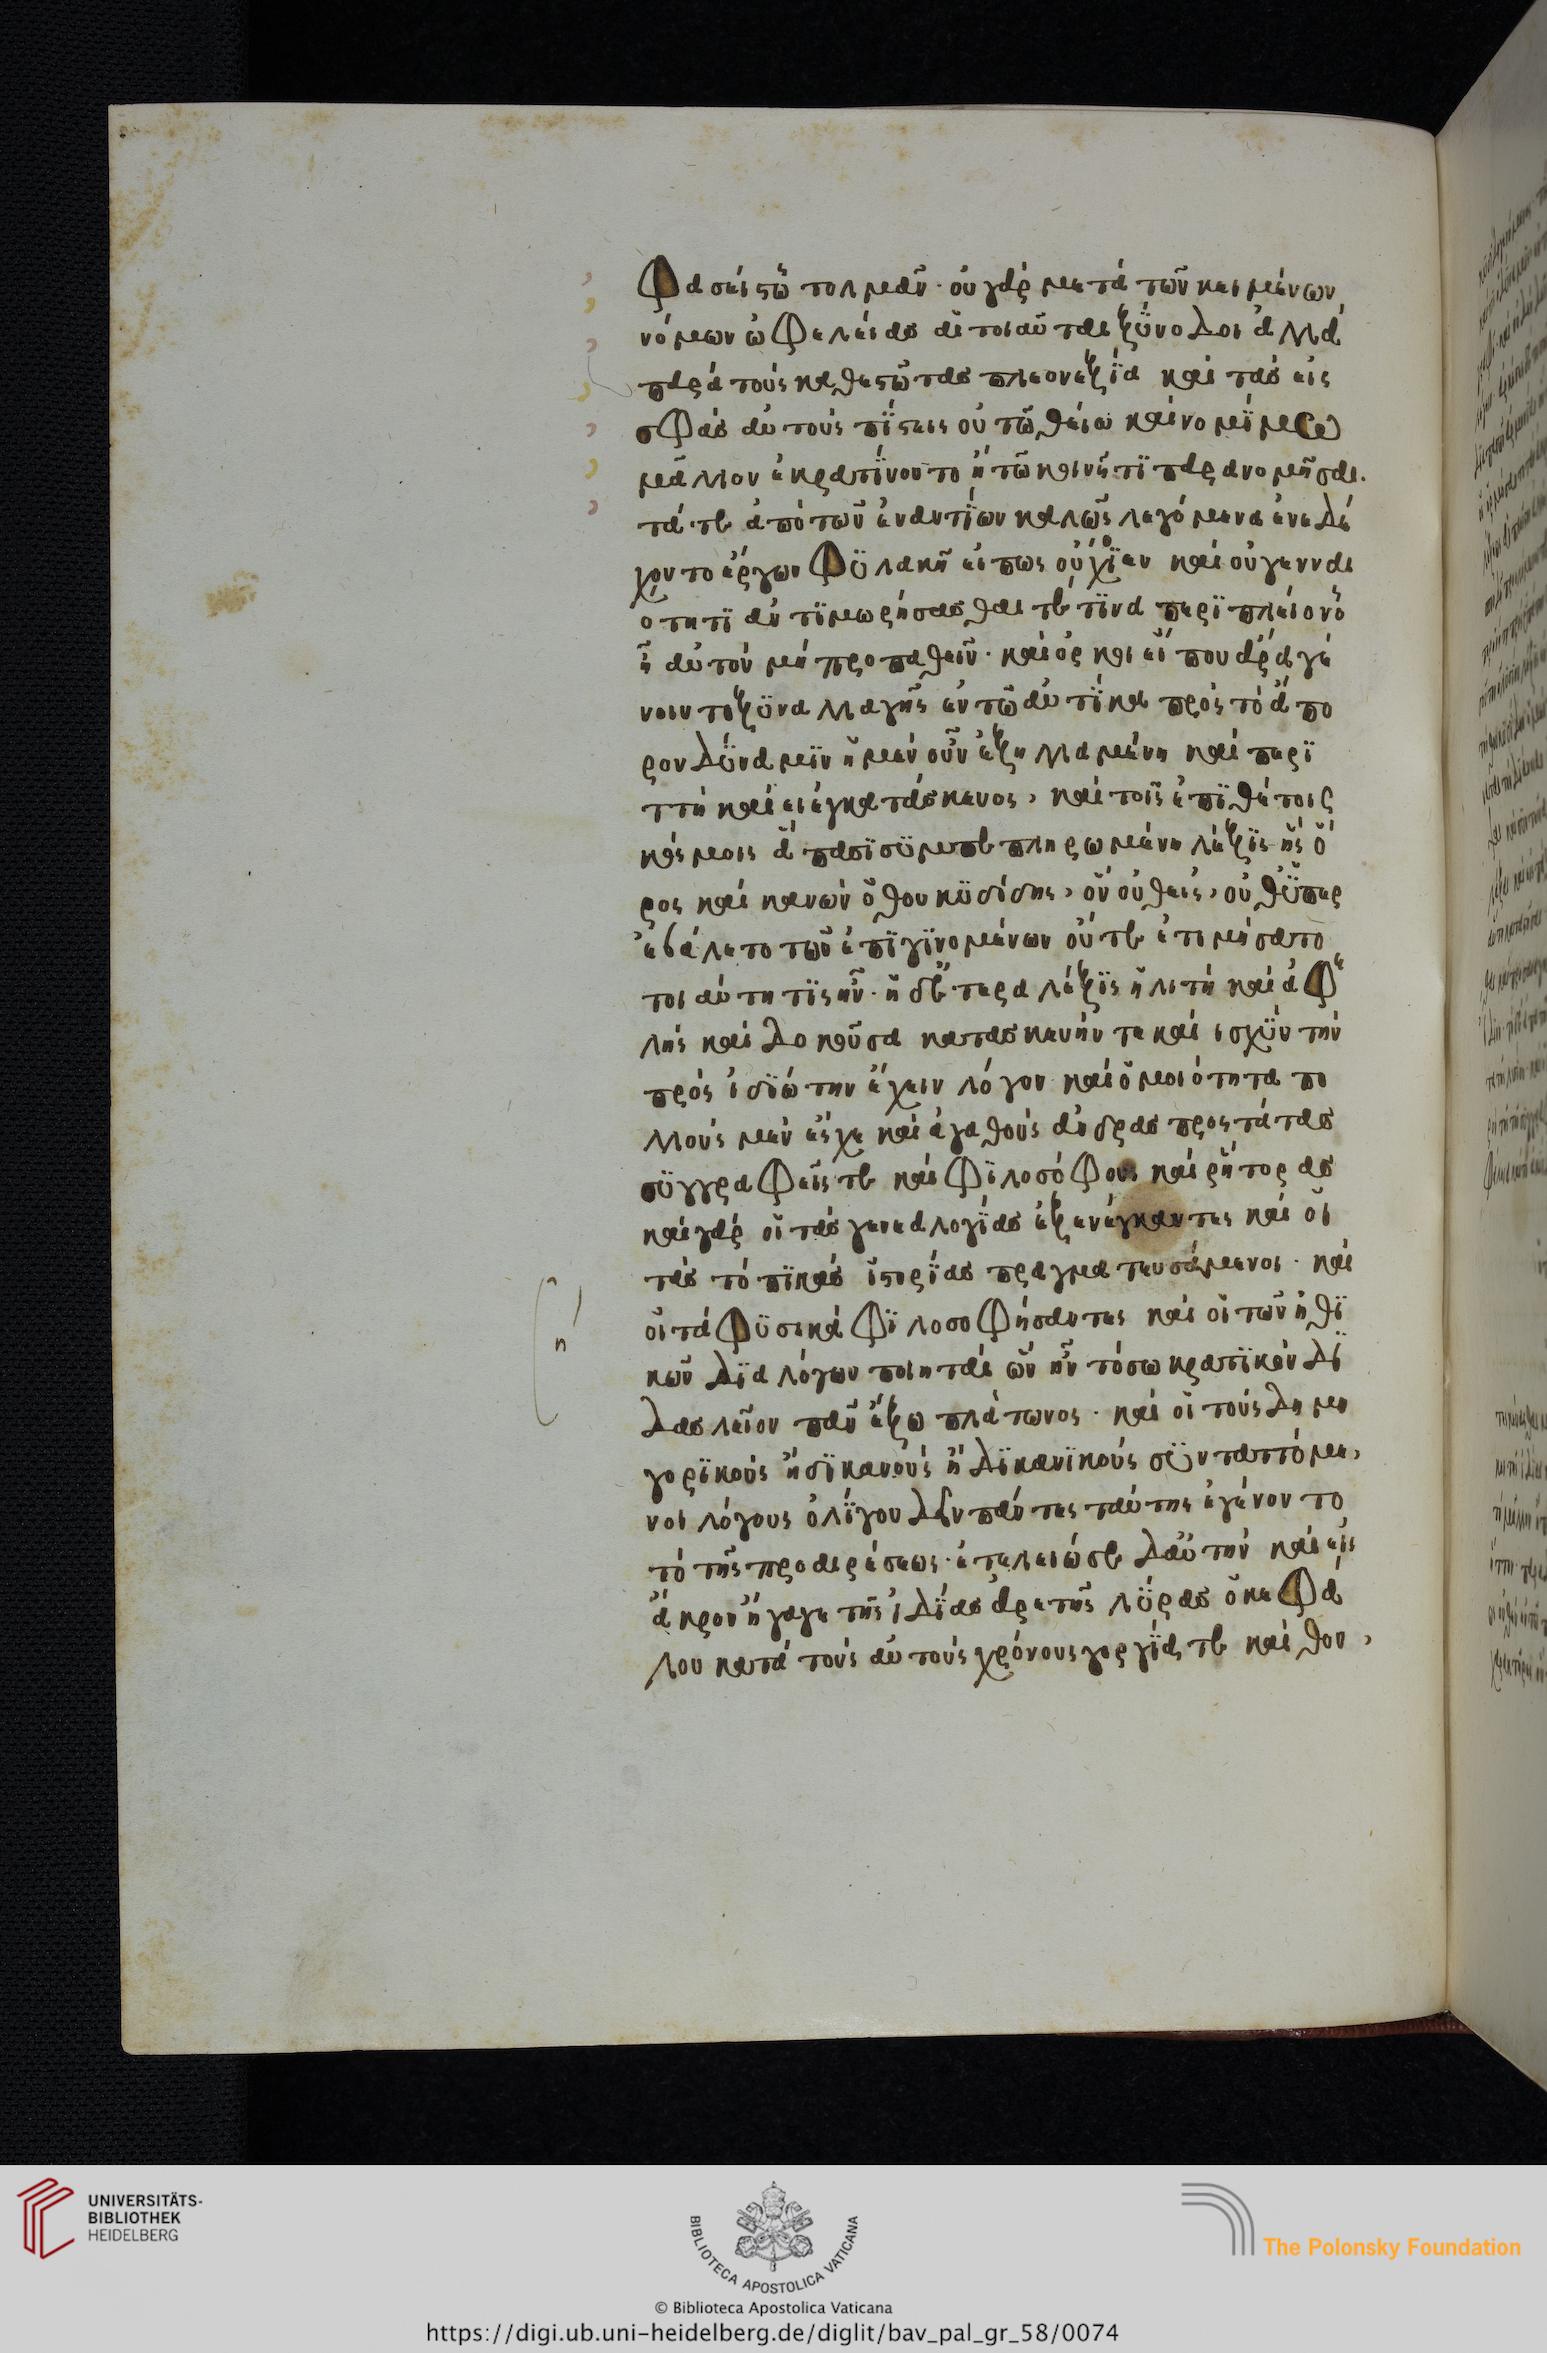 φασίστω τολμᾶν· οὐ γὰρ μετὰ τῶν κειμένων
νόμων ὠφελείας αἱ τοιαῦται ξΰνοδοι ἀλλὰ
παρὰ τοὺς καθεστῶτας πλεονεξΐα καὶ τὰς εἰς
σφὰς αὐτοὺς πΐστεις οὐ τῶ θείω καὶ νομΐμω
μᾶλλον ἐκρατΰνοντο ἢ τῶ κοινῆ τϊ παρανομῆσαι.
τά τε ἀπὸ τῶν ἐναντΐων καλῶς λεγόμενα ἐνεδέ
χοντο ἔργων φϋλακῆ εἴ πως οὐχΐεν καὶ οὐ γενναι
ότητϊ ἀν τϊμωρήσασθαι τε τϊνα περϊ πλείονο
ἢ αὐτὸν μὴ προπαθεῖν· καὶ ὅρκοι εἴ που ἄρα γέ
νοιντο ξϋναλλαγῆς ἐν τῶ αὐτΐκα πρὸς τὸ ἄπο
ρον δΰναμϊν ἡ μὲν οὖν ἐξηλλαμένη καὶ περϊ
ττὴ καὶ ἀνέγκατάσκευος, καὶ τοῖς ἐπϊθέτοις
κόσμοις ἅπασϊ σϋμπεπληρωμένη λέξϊς ἧς ὅ
ρος καὶ κανὼν ὁ θουκϋδίδης, ὃν οὐθεὶς, οὐθ' ΰπερ
εβάλετο τῶν ἐπϊγϊνομένων οὔτε ἐτιμήσατο
τοιαύτη τϊς ἦν· ἡ δὲ ἑτέρα λέξϊς ἡ λιτὴ καὶ ἀφε
λὴς καὶ δοκοῦσα κατασκευήν τε καὶ ισχΰν τὴν
πρὸς ἰδϊώτην ἔχειν λόγον καὶ ὁμοιότητα πο
λλοὺς μὲν ἔσχε καὶ ἀγαθοὺς ἄνδρας προστάτας
σϋγγραφεῖς τε καὶ φϊλοσόφους καὶ ῥήτορας
καὶ γὰρ οἱ τὰς γενεαλογΐας ἐξενέγκαντες καὶ οἱ
τὰς τόπϊκὰς ἱστορΐας πραγματευσάμενοι· καὶ
οἱ τὰ φϋσικὰ φϊλοσοφήσαντες καὶ οἱ τῶν ἠθϊ
κῶν δϊαλόγων ποιηταὶ ὧν ἦν τὸ σωκρατϊκὸν δϊ
δασλεῖον πᾶν ἔξω πλάτωνος· καὶ οἱ τοὺς δημη
γορϊκοὺς ἢ σϊκανοὺς ἢ δϊκανϊκοὺς σϋνταττόμε,
νοι λόγους ὀλΐγου δεῖν πάντες ταύτης ἐγένοντο
τὸ τῆς προαιρέσεως· ἐτελειώσε δαὐτὴν καὶ εἰς
ἄκρον ἤγαγε τῆς ἰδΐας ἀρετῆς λϋρας ὁ κεφά
λου κατὰ τοὺς αὐτοὺς χρόνους γοργΐα τε καὶ θου,
η
UNIVERSITÄTS-
BIBLIOTHEK
HEIDELBERG
BIBLIOTECA APOSTOLICA VATICANA
The Polonsky Foundation
© Biblioteca Apostolica Vaticana
https://digi.ub.uni-heidelberg.de/diglit/bav_pal_gr_58/0074